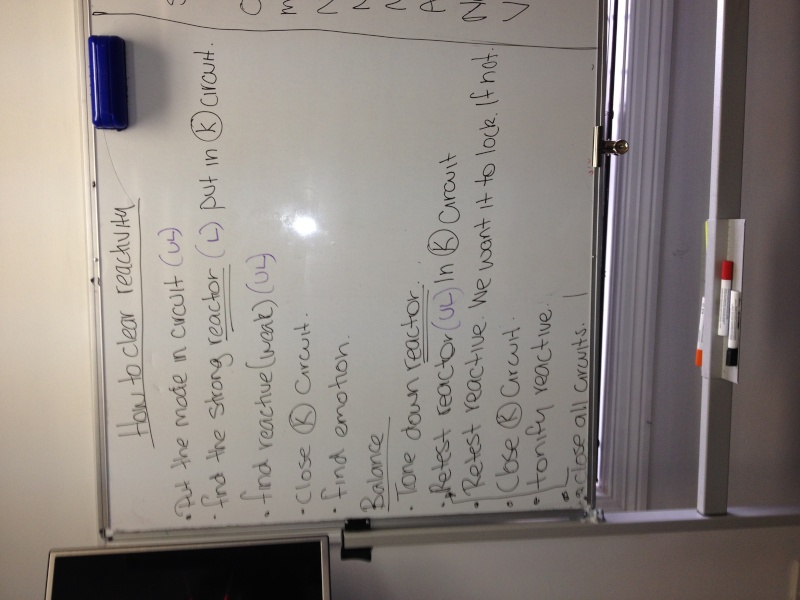 How to clear reactivity
• Put the mode in circuit (UL)
• find the strong reactor (L) put in K circuit.
• find reactive (weak) (UL)
• Close K Circuit.
• find emotion.
Balance
• Tone down reactor.
• Retest reactor (UL) in K Circuit
• Retest reactive. We want it to lock. If not.
• Close K Circuit.
• tonify reactive.
• close all circuits.